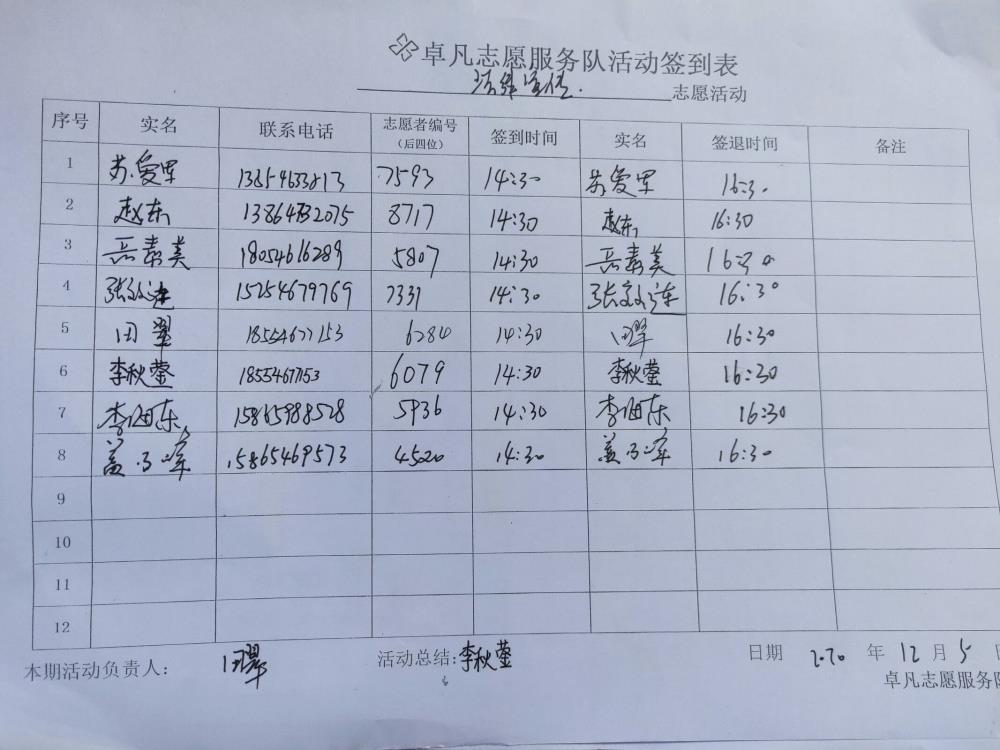 卓凡志愿服务队活动签到表
志愿活动
序号 实名 联系电话 志愿者编号（后四位） 签到时间 实名 签退时间 备注
1 苏爱军 13854633813 7593 14:30 苏爱军 16:30
2 赵东 13864732075 8717 14:30 赵东 16:30
3 岳素美 18054616289 5807 14:30 岳素美 16:30
4 张效连 15254679769 7331 14:30 张效连 16:30
5 田翠 18554677153 6284 14:30 田翠 16:30
6 李秋莹 18554677153 6079 14:30 李秋莹 16:30
7 李海东 15865988528 5936 14:30 李海东 16:30
8 盖 峰 15865469573 4520 14:30 盖 峰 16:30
9
10
11
12
本期活动负责人： 田翠 活动总结：李秋莹 日期 2020 年 12 月 5 日
卓凡志愿服务队